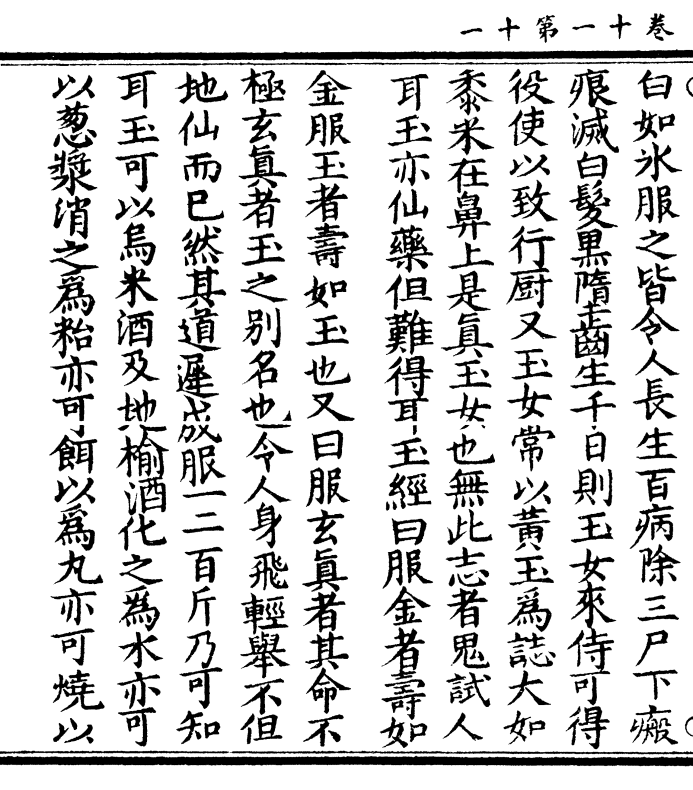 卷十一第十一
白如氷服之皆令人長生百病除三尸下瘢
痕滅白髮黒隋𡈽齒生千日則玉女來侍可得
役使以致行厨又玉女常以黃玉為誌大如
黍米在鼻上是真玉女也無此志者鬼試人
耳玉亦仙藥但難得耳玉經曰服金者壽如
金服玉者壽如玉也又曰服玄真者其命不
極玄真者玉之别名也令人身飛輕舉不但
地仙而已然其道遲成服一二百斤乃可知
耳玉可以烏米酒及地榆酒化之為水亦可
以葱漿消之為粭亦可餌以為丸亦可燒以